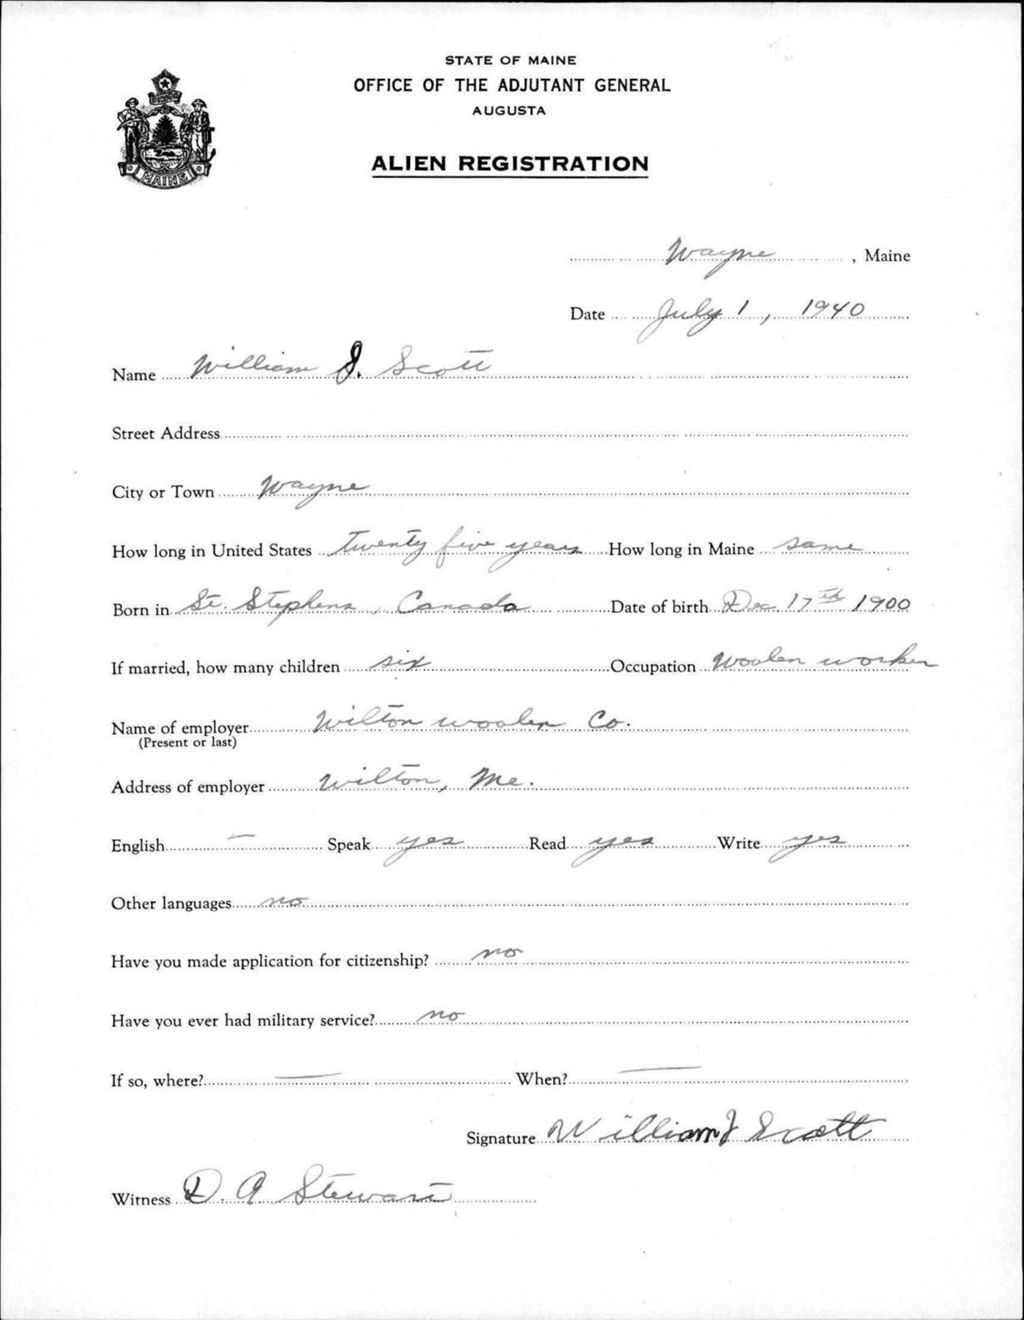 STATE OF MAINE
OFFICE OF THE ADJUTANT GENERAL
AUGUSTA
ALIEN REGISTRATION
MAINE
Wayne, Maine
Date July 1, 1940
Name William J. Scott
Street Address
City or Town Wayne
How long in United States twenty five years How long in Maine same
Born in St. Stephens, Canada Date of birth Dec 17th 1900
If married, how many children six Occupation Woolen worker
Name of employer Wilton woolen Co.
(Present or last)
Address of employer Wilton, Me.
English – Speak yes Read yes Write yes
Other languages no
Have you made application for citizenship? no
Have you ever had military service? no
If so, where? — When? —
Signature William J Scott
Witness D. A Stewart